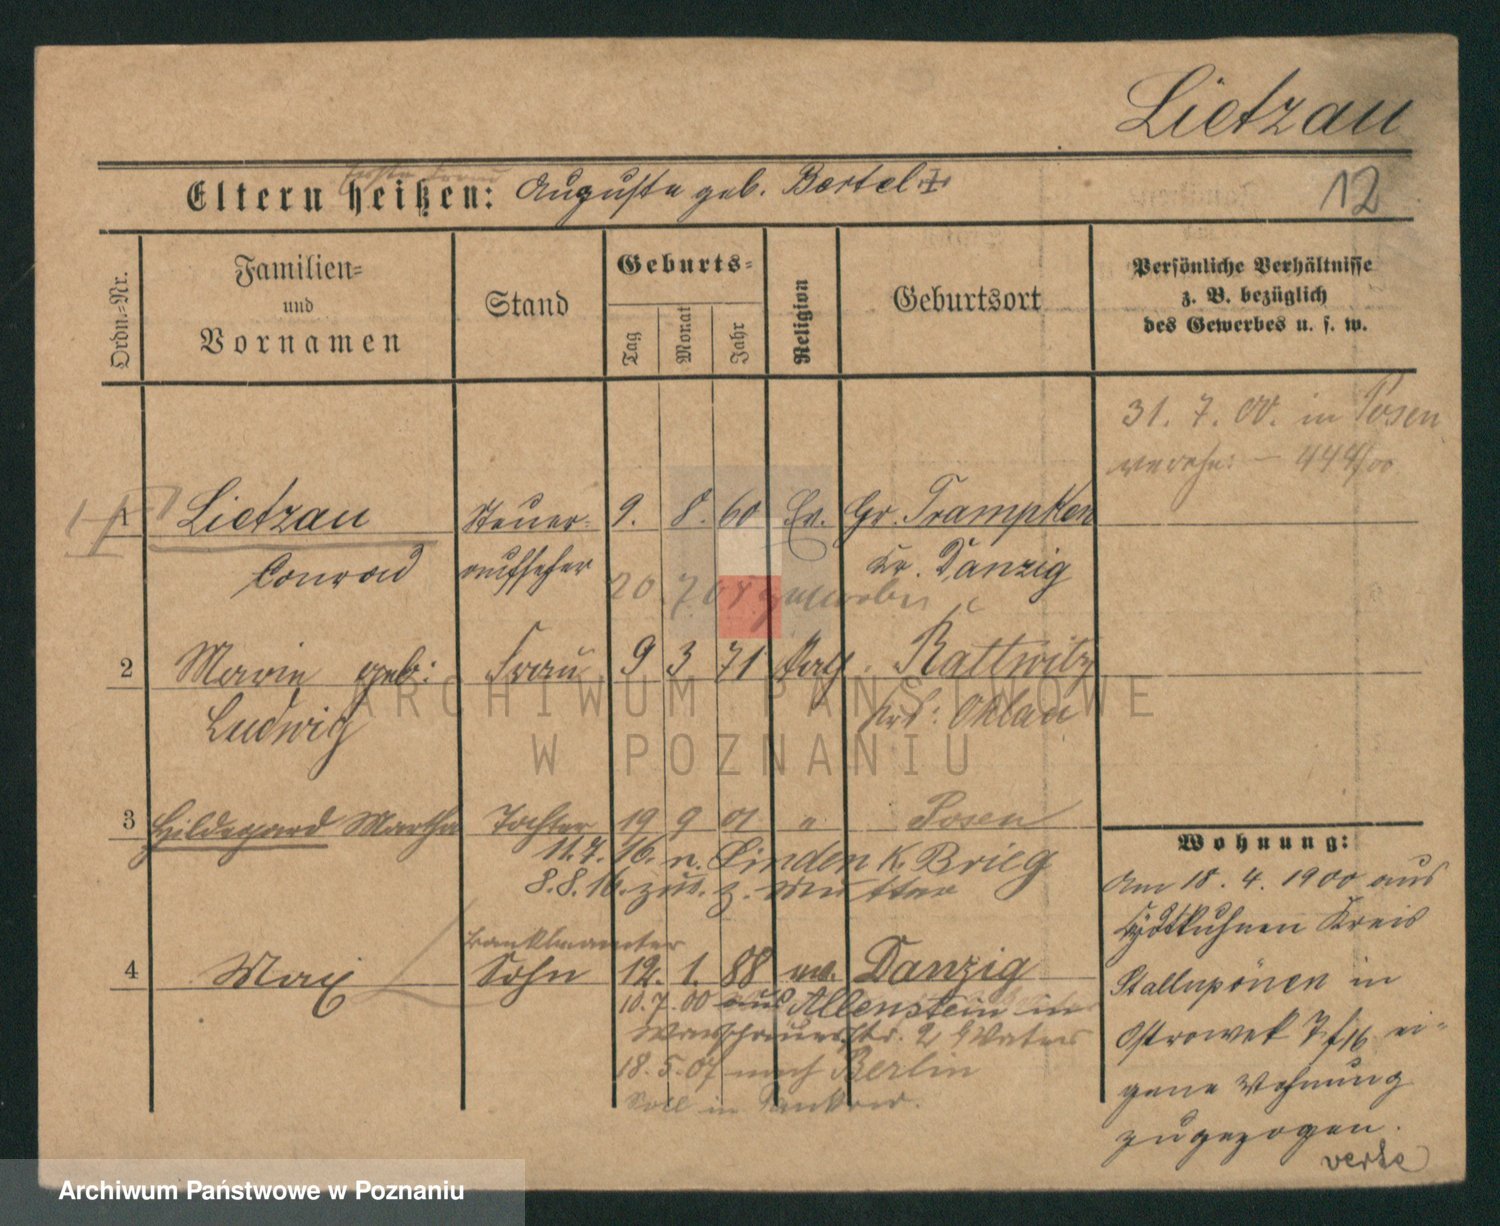 Lietzau
Eltern heißen: Auguste geb. Bertel
12
Ordn.-Nr.
Familien-
und
Vornamen
Stand
Geburts-
Tag
Monat
Jahr
Religion
Geburtsort
Persönliche Verhältnisse
z. B. bezüglich
des Gewerbes u. s. w.
31. 7. 00. in Posen
vereh: - 444/00
1 Lietzau Steuer- 9. 8. 60 Ev. Gr. Trampken
Conrad aufseher Kr. Danzig
20. 7. 07 gestorben
2 Marie geb: Frau 9 3 71 Kath. Rattwitz
Ludwig Krs: Ohlau
3 Hildegard Martha Tochter 19 9 01 " Posen
11.7.16. n. Linden K. Brieg
8.8.16. zur. z. Mutter
Bankbeamter
4 Max Sohn 12. 1. 88 ev. Danzig
10.7.00 aus Allenstein in
2 b/Vater
18.5.07 nach Berlin
Soll in Pankow.
Wohnung:
Am 18. 4. 1900 aus
Eydtkuhnen Kreis
Stallupönen in
Ostrowek 7. ei-
gene Wohnung
zugezogen.
verte
ARCHIWUM PAŃSTWOWE
W POZNANIU
Archiwum Państwowe w Poznaniu